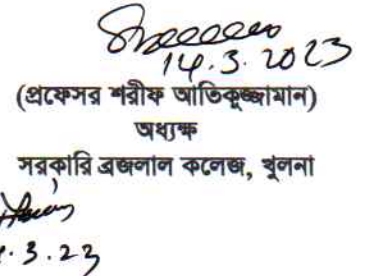 14.3.2023
(প্রফেসর শরীফ আতিকুজ্জামান)
অধ্যক্ষ
সরকারি ব্রজলাল কলেজ, খুলনা
.3.23